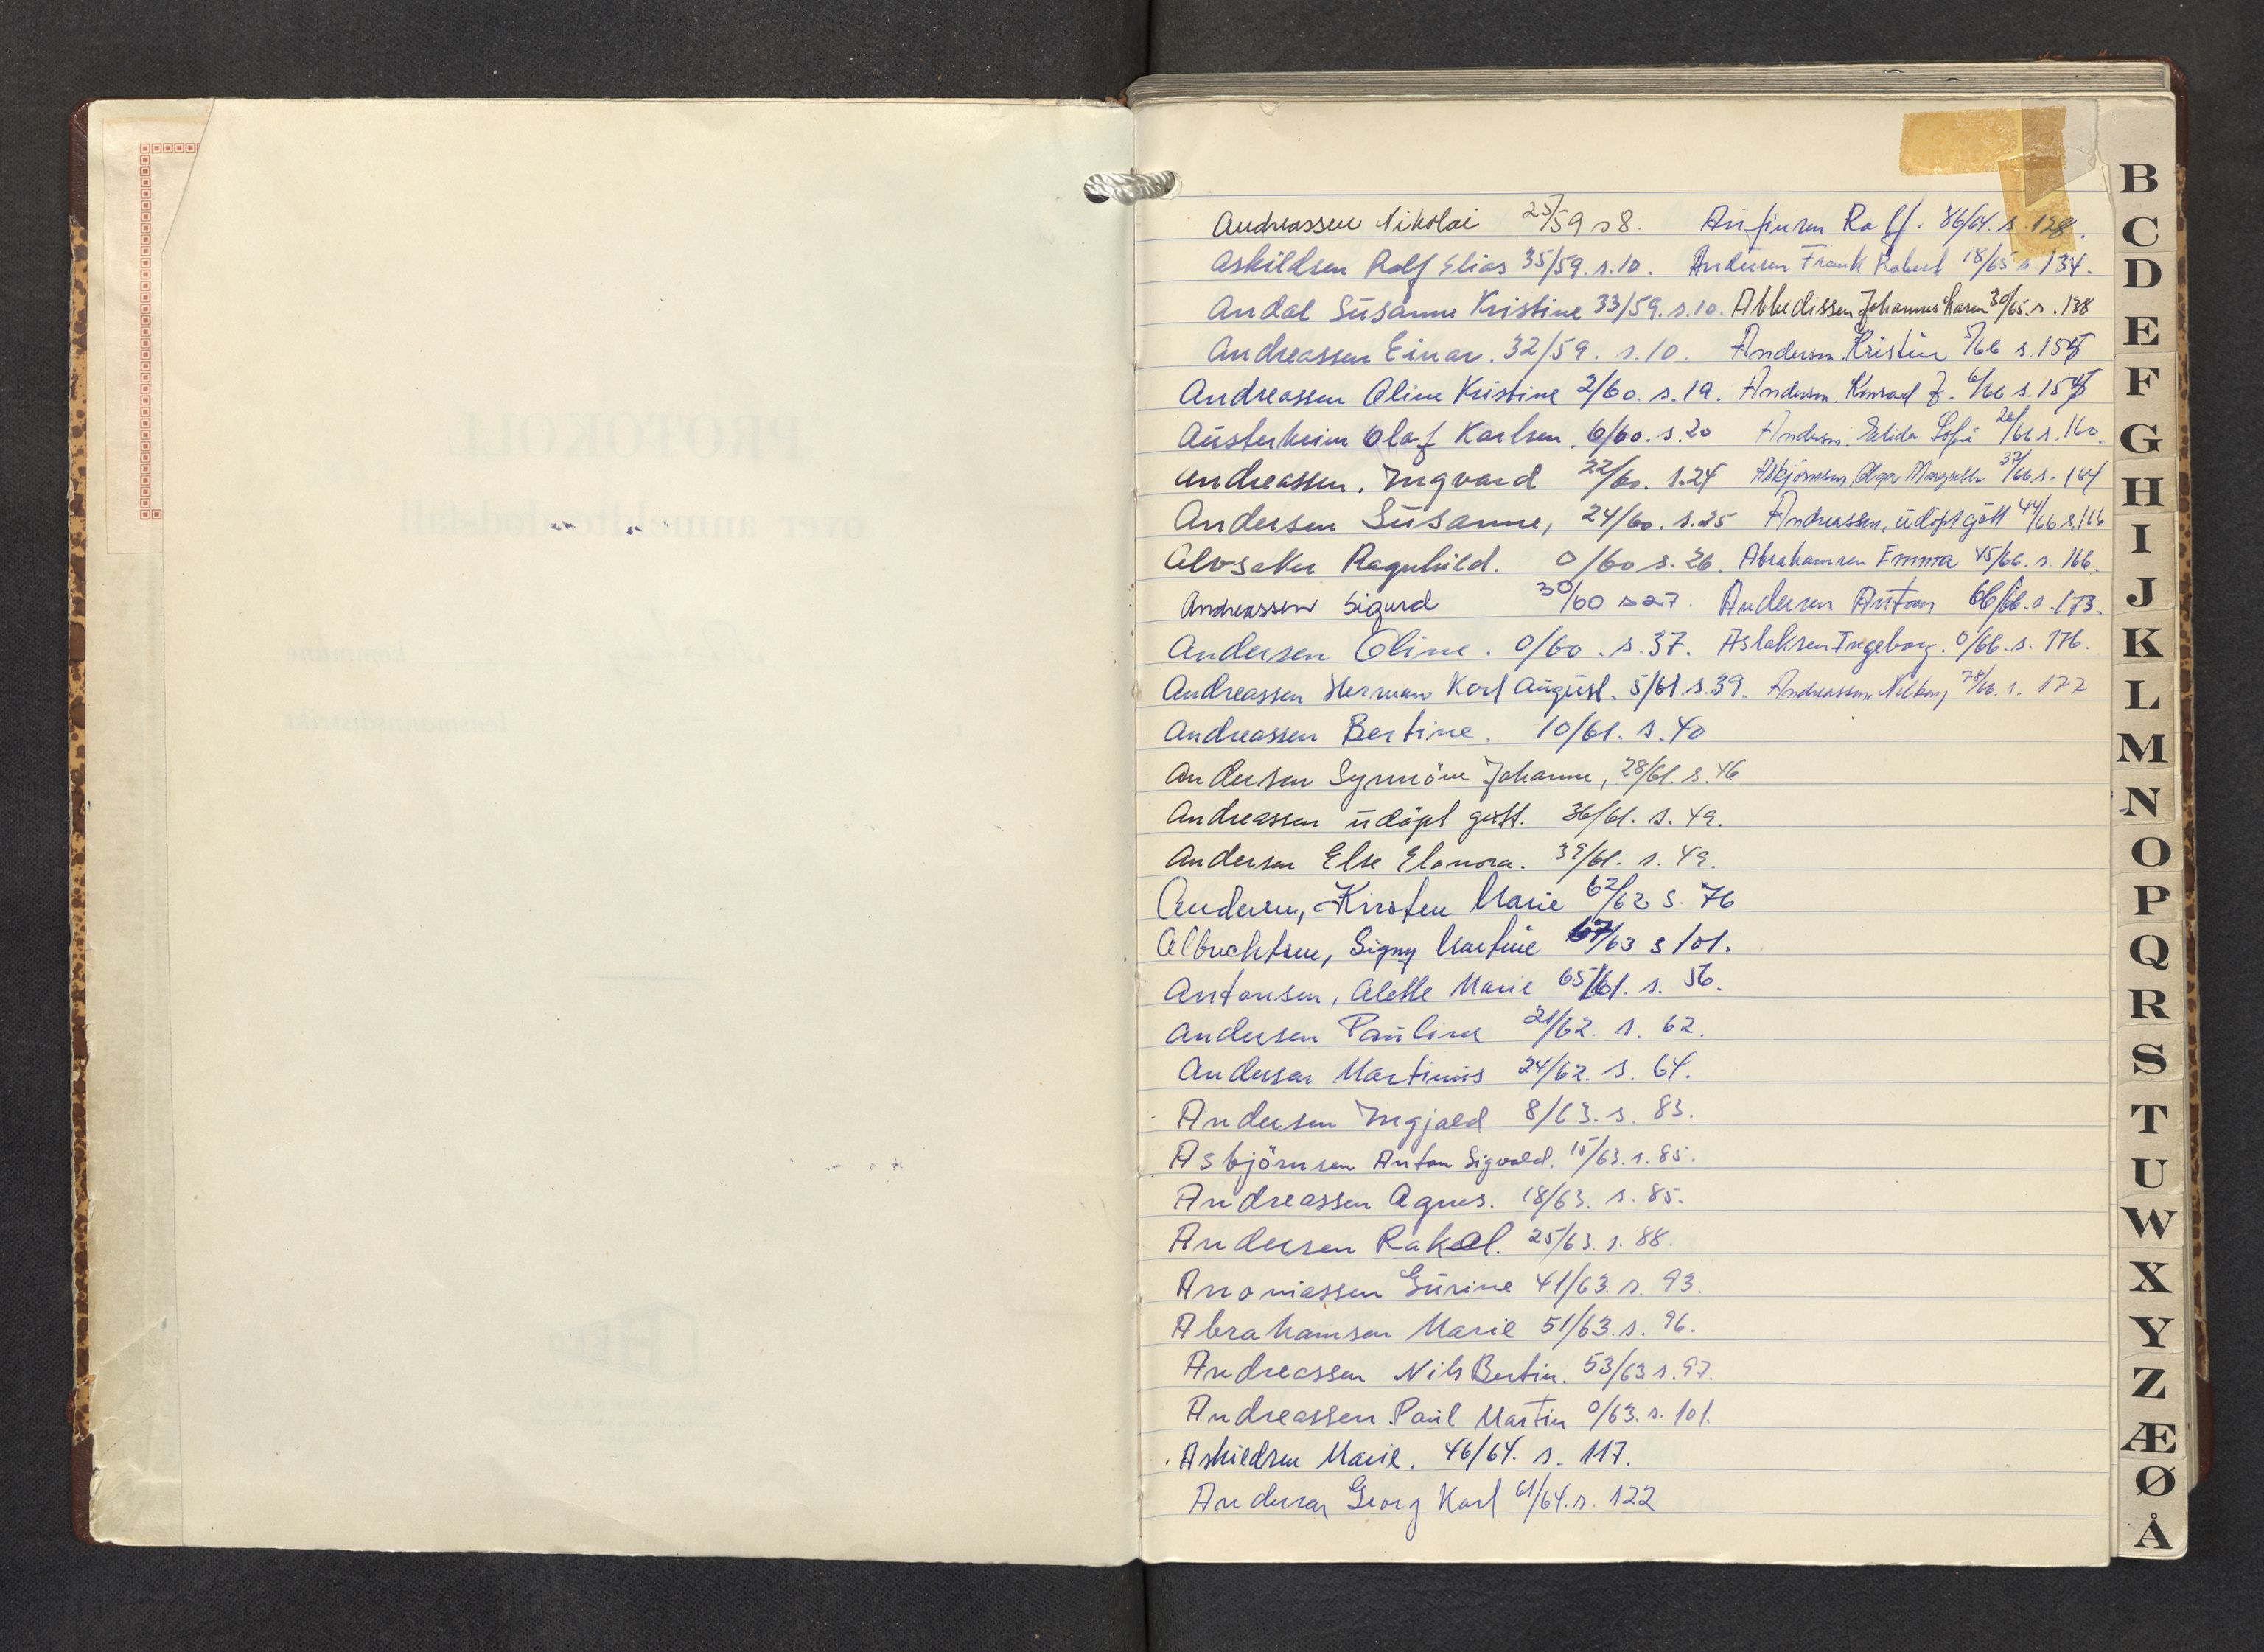 Andreassen Nikolai 25/59 s 8.
Askildsen Rolf Elias 35/59. s. 10.
Andal Susanne Kristine 33/59. s. 10.
Andreassen Einar. 32/59. s. 10.
Andreassen Oline Kristine 2/60. s. 19.
Austerheim Olaf Karlsen. 6/60. s. 20
Andreassen. Ingvard 22/60. s. 24
Andersen Susanne, 24/60. s. 25
Alvsaker Ragnhild. 0/60 s. 26.
Andreassen Sigurd 30/60 s 27.
Andersen Oline. 0/60. s. 37.
Andreassen Herman Karl August. 5/61. s. 39.
Andreassen Bertine. 10/61. s. 40
Andersen Synnöve Johanne, 28/61. s. 46
Andreassen udöpt gutt. 36/61. s. 49.
Andersen Else Elonora. 39/61. s. 49.
Andersen, Kirsten Marie 62/62 s. 76
Albrechtsen, Signy Martine 67/63 s 101.
Antonsen, Alette Marie 65/61. s. 56.
Andersen Pauline 21/62. s. 62.
Andersen Martinus 24/62. s. 64.
Andersen Ingjald 8/63. s. 83.
Asbjörnsen Anton Sigvald. 15/63. s. 85.
Andreassen Agnes. 18/63. s. 85.
Andersen Rakel. 25/63. s. 88.
Anoniassen Gurine 41/63. s. 93.
Abrahamsen Marie 51/63. s. 96.
Andreassen Nils Bertin. 53/63 s. 97.
Andreassen. Paul Martin 0/63. s. 101.
Askildsen Marie. 46/64. s. 117.
Andersen Georg Karl 61/64. s. 122
Anfinsen Rolf. 86/64. s. 128.
Andersen Frank Robert 18/65 s. 134.
Johannes 30/65. s. 138
Andersen. Kristine 5/66 s.
Andersen. Konrad J. 6/66 s.
Andersen. Elida Sofie 26/66 s. 160.
Asbjörnsen, Olga Margrethe 37/66 s. 164
Andreassen, udöpt gutt 44/66 s. 166
Abrahamsen Emma 45/66. s. 166.
Andersen Anton 66/66. s. 173.
Aslaksen Ingeborg. 0/66. s. 176.
Andreassen 78/66. s. 177
B
C
D
E
F
G
H
I
J
K
L
M
N
O
P
Q
R
S
T
U
W
X
Y
Z
Æ
Ø
Å